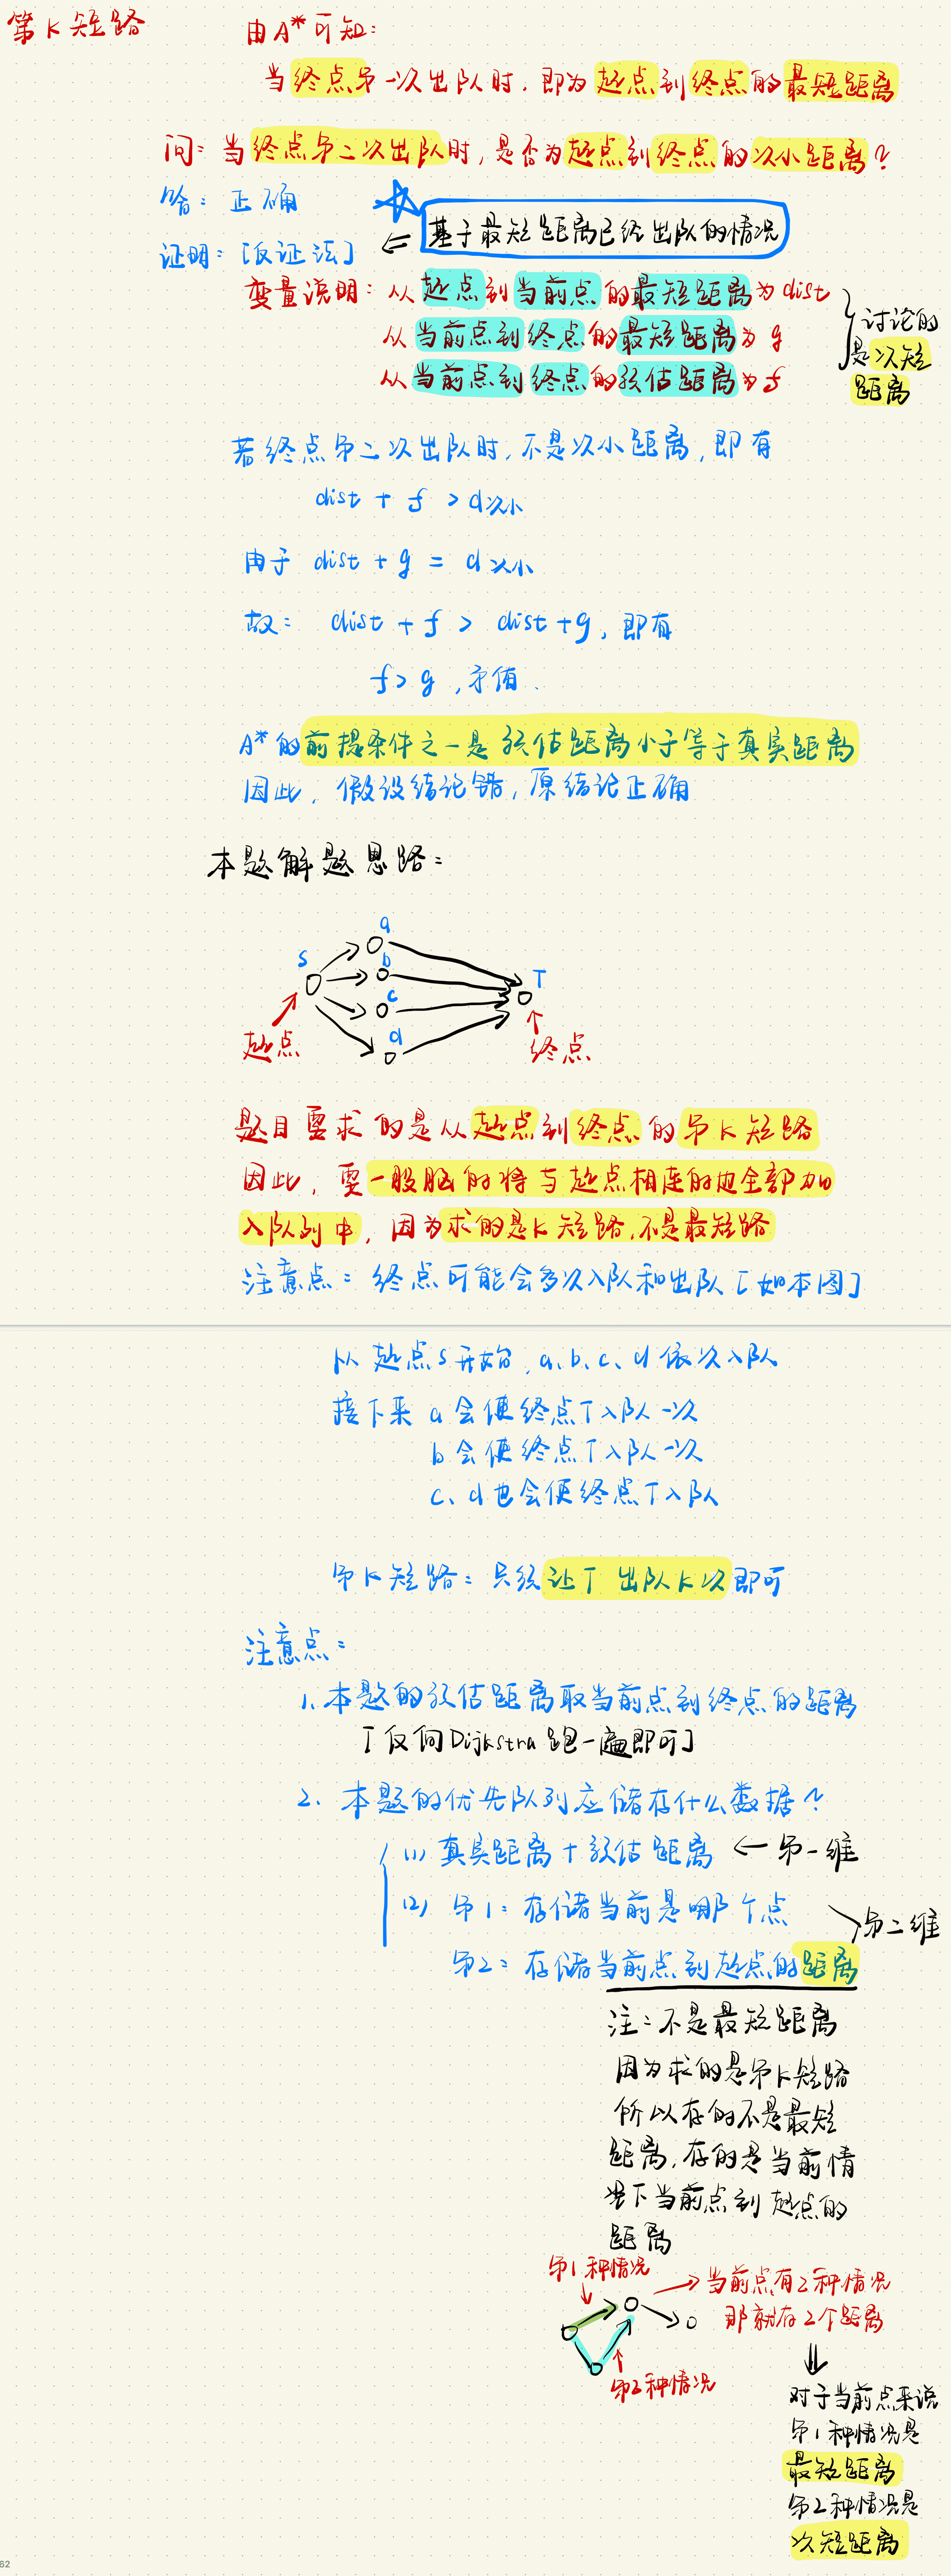 第K短路
由A*可知：
当终点第一次出队时，即为起点到终点的最短距离
问：当终点第二次出队时，是否为起点到终点的次小距离？
答：正确
基于最短距离已经出队的情况
证明：[反证法] ⇐
变量说明：从起点到当前点的最短距离为dist
从当前点到终点的最短距离为g
从当前点到终点的预估距离为f
讨论的
是次短
距离
若终点第二次出队时，不是次小距离，即有
dist + f > d次小
由于 dist + g = d次小
故： dist + f > dist + g，即有
f > g，矛盾.
A*的前提条件之一是预估距离小于等于真实距离
因此，假设结论错，原结论正确
本题解题思路：
a
S
b
T
c
d
起点
终点
题目要求的是从起点到终点的第K短路
因此，要一股脑的将与起点相连的边全部加
入队列中，因为求的是K短路，不是最短路
注意点：终点可能会多次入队和出队[如本图]
从起点S开始，a、b、c、d依次入队
接下来 a会使终点T入队一次
b会使终点T入队一次
c、d也会使终点T入队
第K短路：只须让T出队K次即可
注意点：
1. 本题的预估距离取当前点到终点的距离
[反向Dijkstra跑一遍即可]
2. 本题的优先队列应储存什么数据？
(1) 真实距离 + 预估距离 ← 第一维
(2) 第1：存储当前是哪个点
第二维
第2：存储当前点到起点的距离
注：不是最短距离
因为求的是第K短路
所以存的不是最短
距离，存的是当前情
况下当前点到起点的
距离
第1种情况
→当前点有2种情况
那就存2个距离
第2种情况
对于当前点来说
第1种情况是
最短距离
第2种情况是
次短距离
62